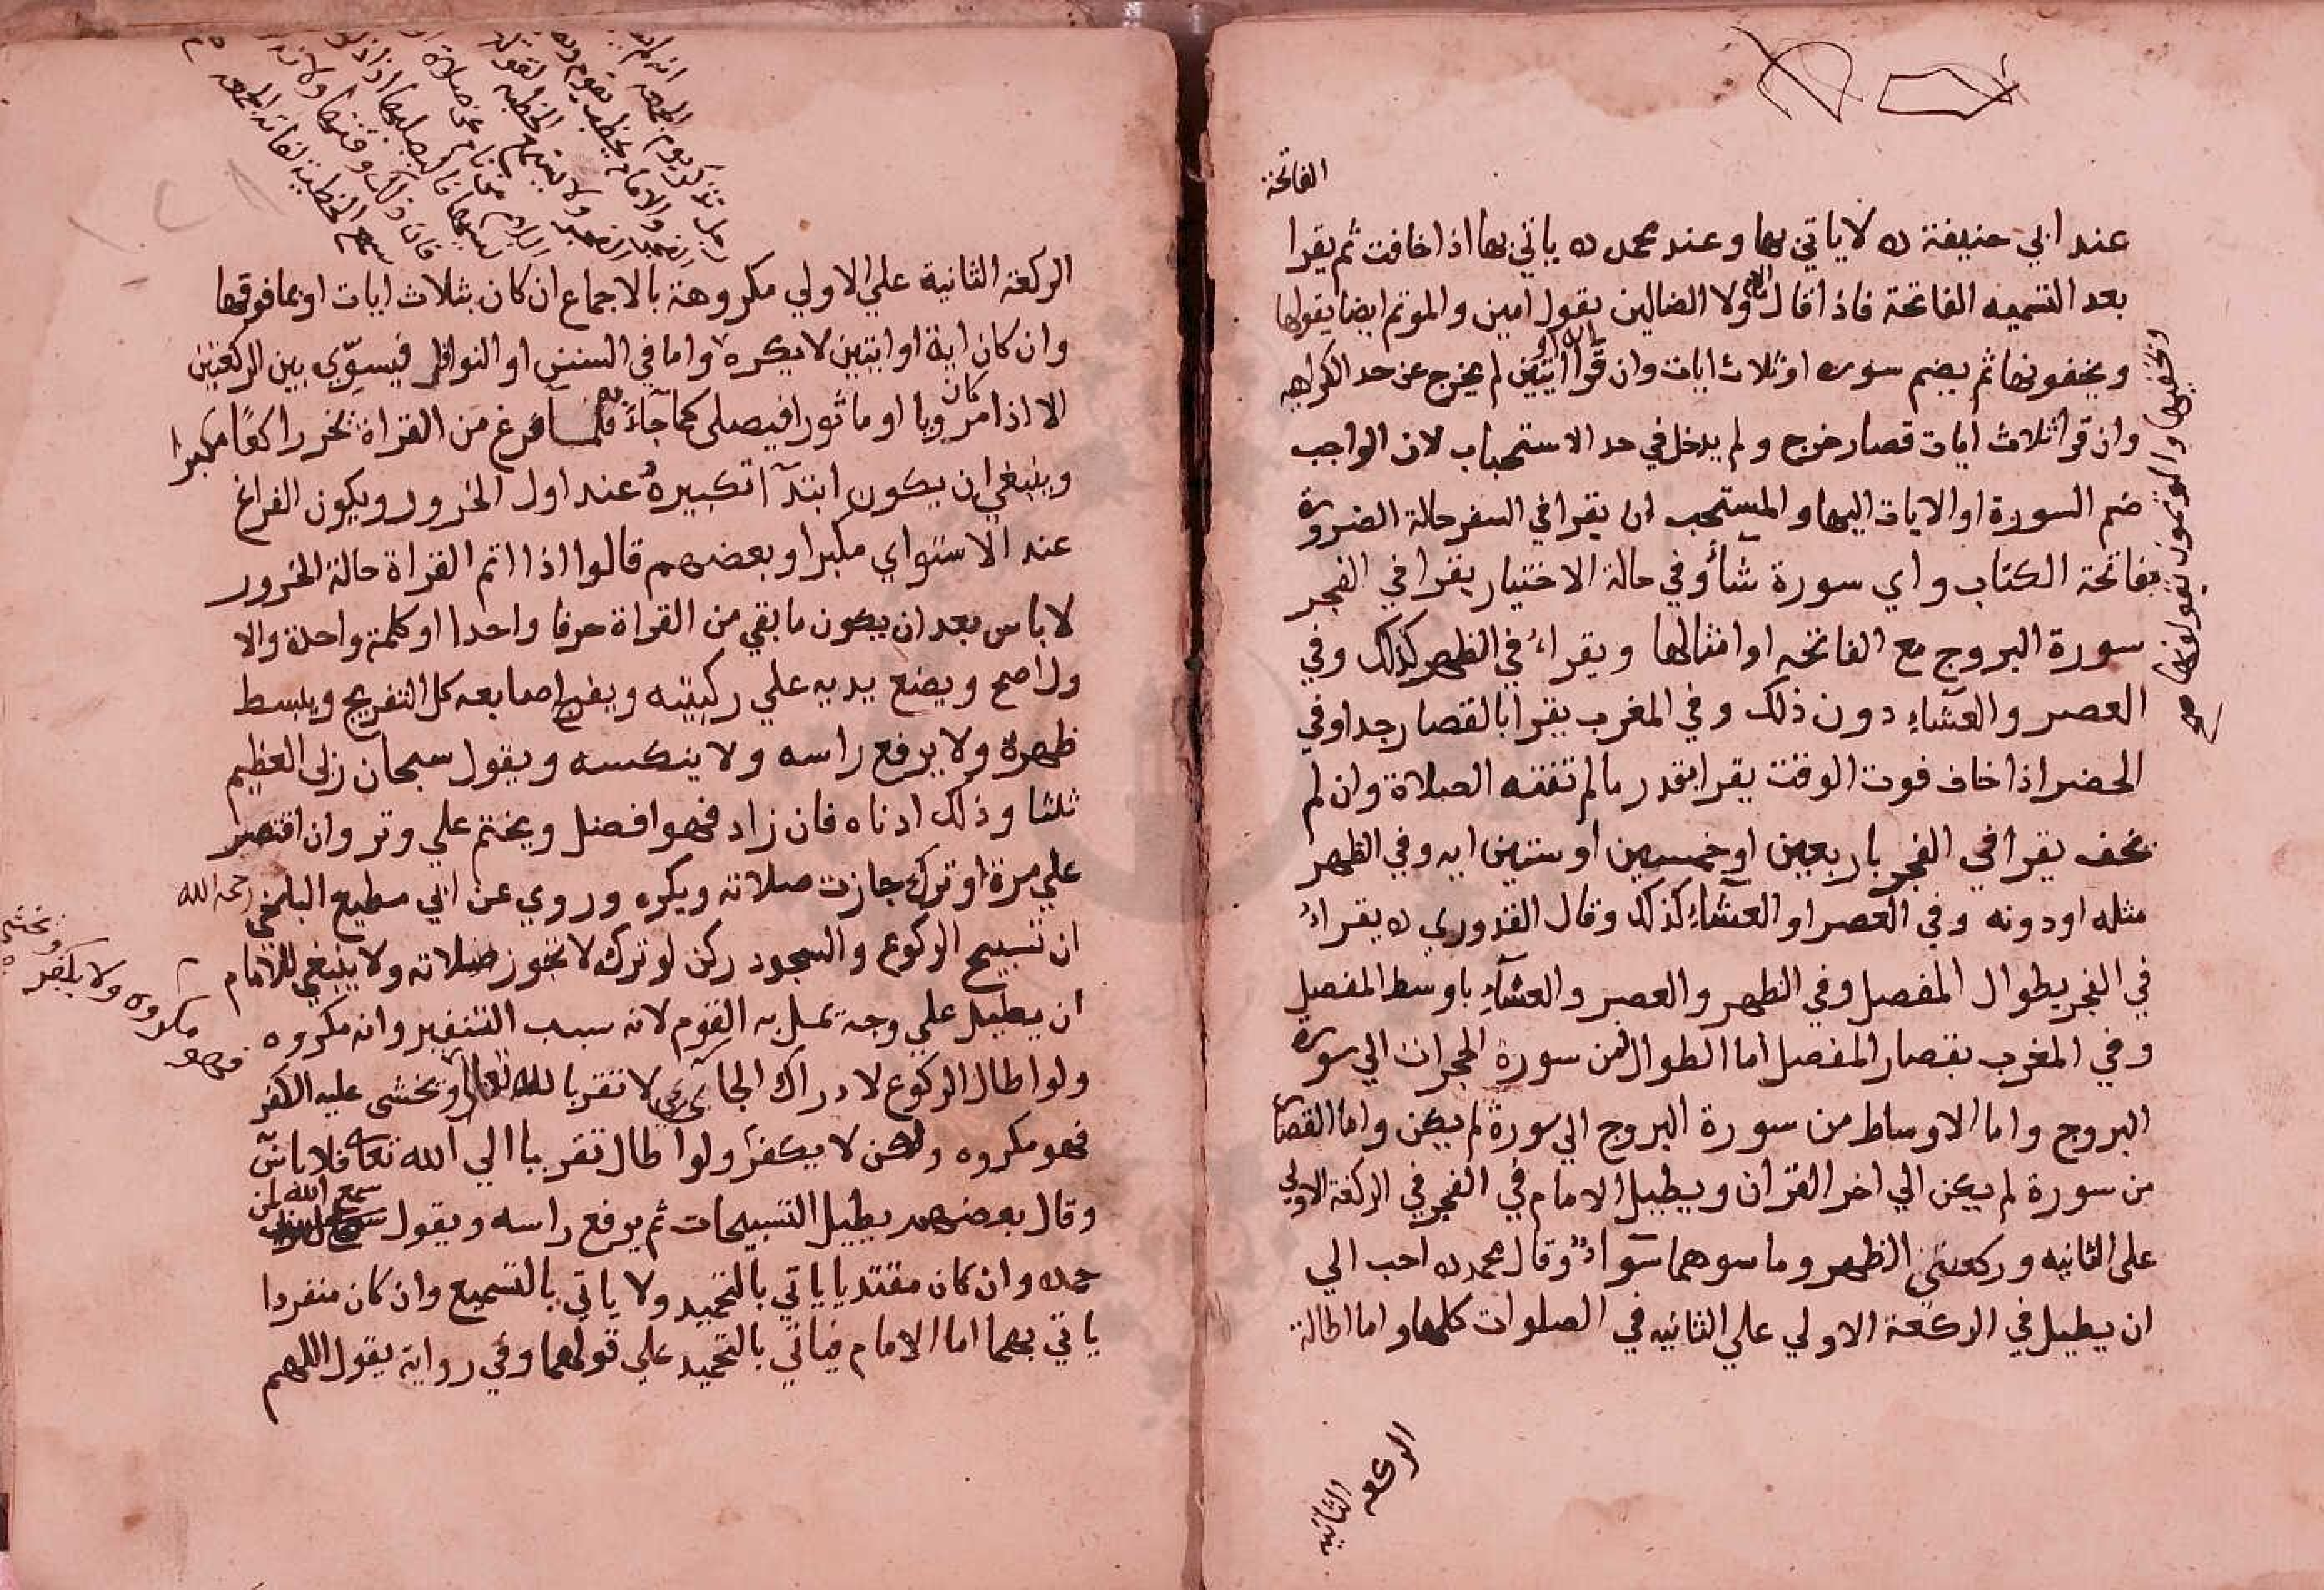 الفاتحة
عند ابي حنيفة ره لا ياتي بها وعند محمد ره ياتي بها اذا خافت ثم يقرا
بعد التسميه الفاتحة فاذا قال الامام ولا الضالين يقول امين والموتم ايضا يقولها
ويخفونها ثم يضم سوره او ثلاث ايات وان قرا اية او ايتين لم يخرج عن حد الكراهه
وان قرا ثلاث ايات قصار خرج ولم يدخل في حد الاستحباب لان الواجب
ضم السورة او الايات اليها والمستحب ان يقرا في السفر حالة الضرورة
بفاتحة الكتاب واي سورة شأ وفي حالة الاختيار يقرا في الفجر
سورة البروج مع الفاتحه او امثالها ويقراء في الظهر كذلك وفي
العصر والعشاء دون ذلك وفي المغرب يقرا بالقصار جدا وفي
الحضر اذا خاف فوت الوقت يقرا بقدر ما لم تفته الصلاة وان لم
يخف يقرا في الفجر باربعين او خمسين او ستين ايه وفي الظهر
مثله او دونه وفي العصر او العشاء كذلك وقال القدوري ره يقراء
في الفجر بطوال المفصل وفي الظهر والعصر والعشاء باوسط المفصل
وفي المغرب بقصار المفصل اما الطوال فمن سورة الحجرات الي سورة
البروج واما الاوساط من سورة البروج الي سورة لم يكن واما القصار
من سورة لم يكن الي اخر القران ويطيل الامام في الفجر في الركعة الاولي
على الثانيه وركعتي الظهر وما سوهما سواء وقال محمد ره احب الي
ان يطيل في الركعة الاولي علي الثانيه في الصلوات كلها واما اطالة
الركعة
الثانية
ويخفيها والموتمون يقولونها صح
الركعة الثانية علي الاولي مكروهة بالاجماع ان كان بثلاث ايات او بما فوقها
وان كان اية او ايتين لا يكره واما في السنن او النوافل فيسوّي بين الركعتين
الا اذا كان مرويا او ماثورا فيصلى كما جاء فلما فرغ من القراة يخر راكعًا مكبرا
وينبغي ان يكون ابتدآ تكبيره عند اول الخرور ويكون الفراغ
عند الاستواي مكبرا وبعضهم قالوا اذا اتم القراة حالة الخرور
لا باس بعد ان يكون ما بقي من القراة حرفا واحدا او كلمة واحدة والا
ول اصح ويضع يديه علي ركبتيه ويفرج اصابعه كل التفريج ويبسط
ظهره ولا يرفع راسه ولا ينكسه ويقول سبحان ربي العظيم
ثلثا وذلك ادناه فان زاد فهو افضل ويختم علي وتر وان اقتصر
علي مرة او ترك جازت صلاته ويكره وروي عن ابي مطيع البلخي رحمه الله
ان تسبيح الركوع والسجود ركن لو ترك لا تجوز صلاته ولا ينبغي للامام
ان يطيل علي وجه يمل به القوم لانه سبب التنفير وانه مكروه
ولو اطال الركوع لادراك الجائي لا تقربا لله تعالى ويخشى عليه الكفر
فهو مكروه ولكن لا يكفر ولو اطال تقربا الي الله تعا فلا باس
وقال بعضهم يطيل التسبيحات ثم يرفع راسه ويقول سمع الله لمن
حمده وان كان مقتديا ياتي بالتحميد ولا ياتي بالتسميع وان كان منفردا
ياتي بهما اما الامام فياتي بالتحميد علي قولهما وفي رواية يقول اللهم
فهو مكروه ولا يكفر